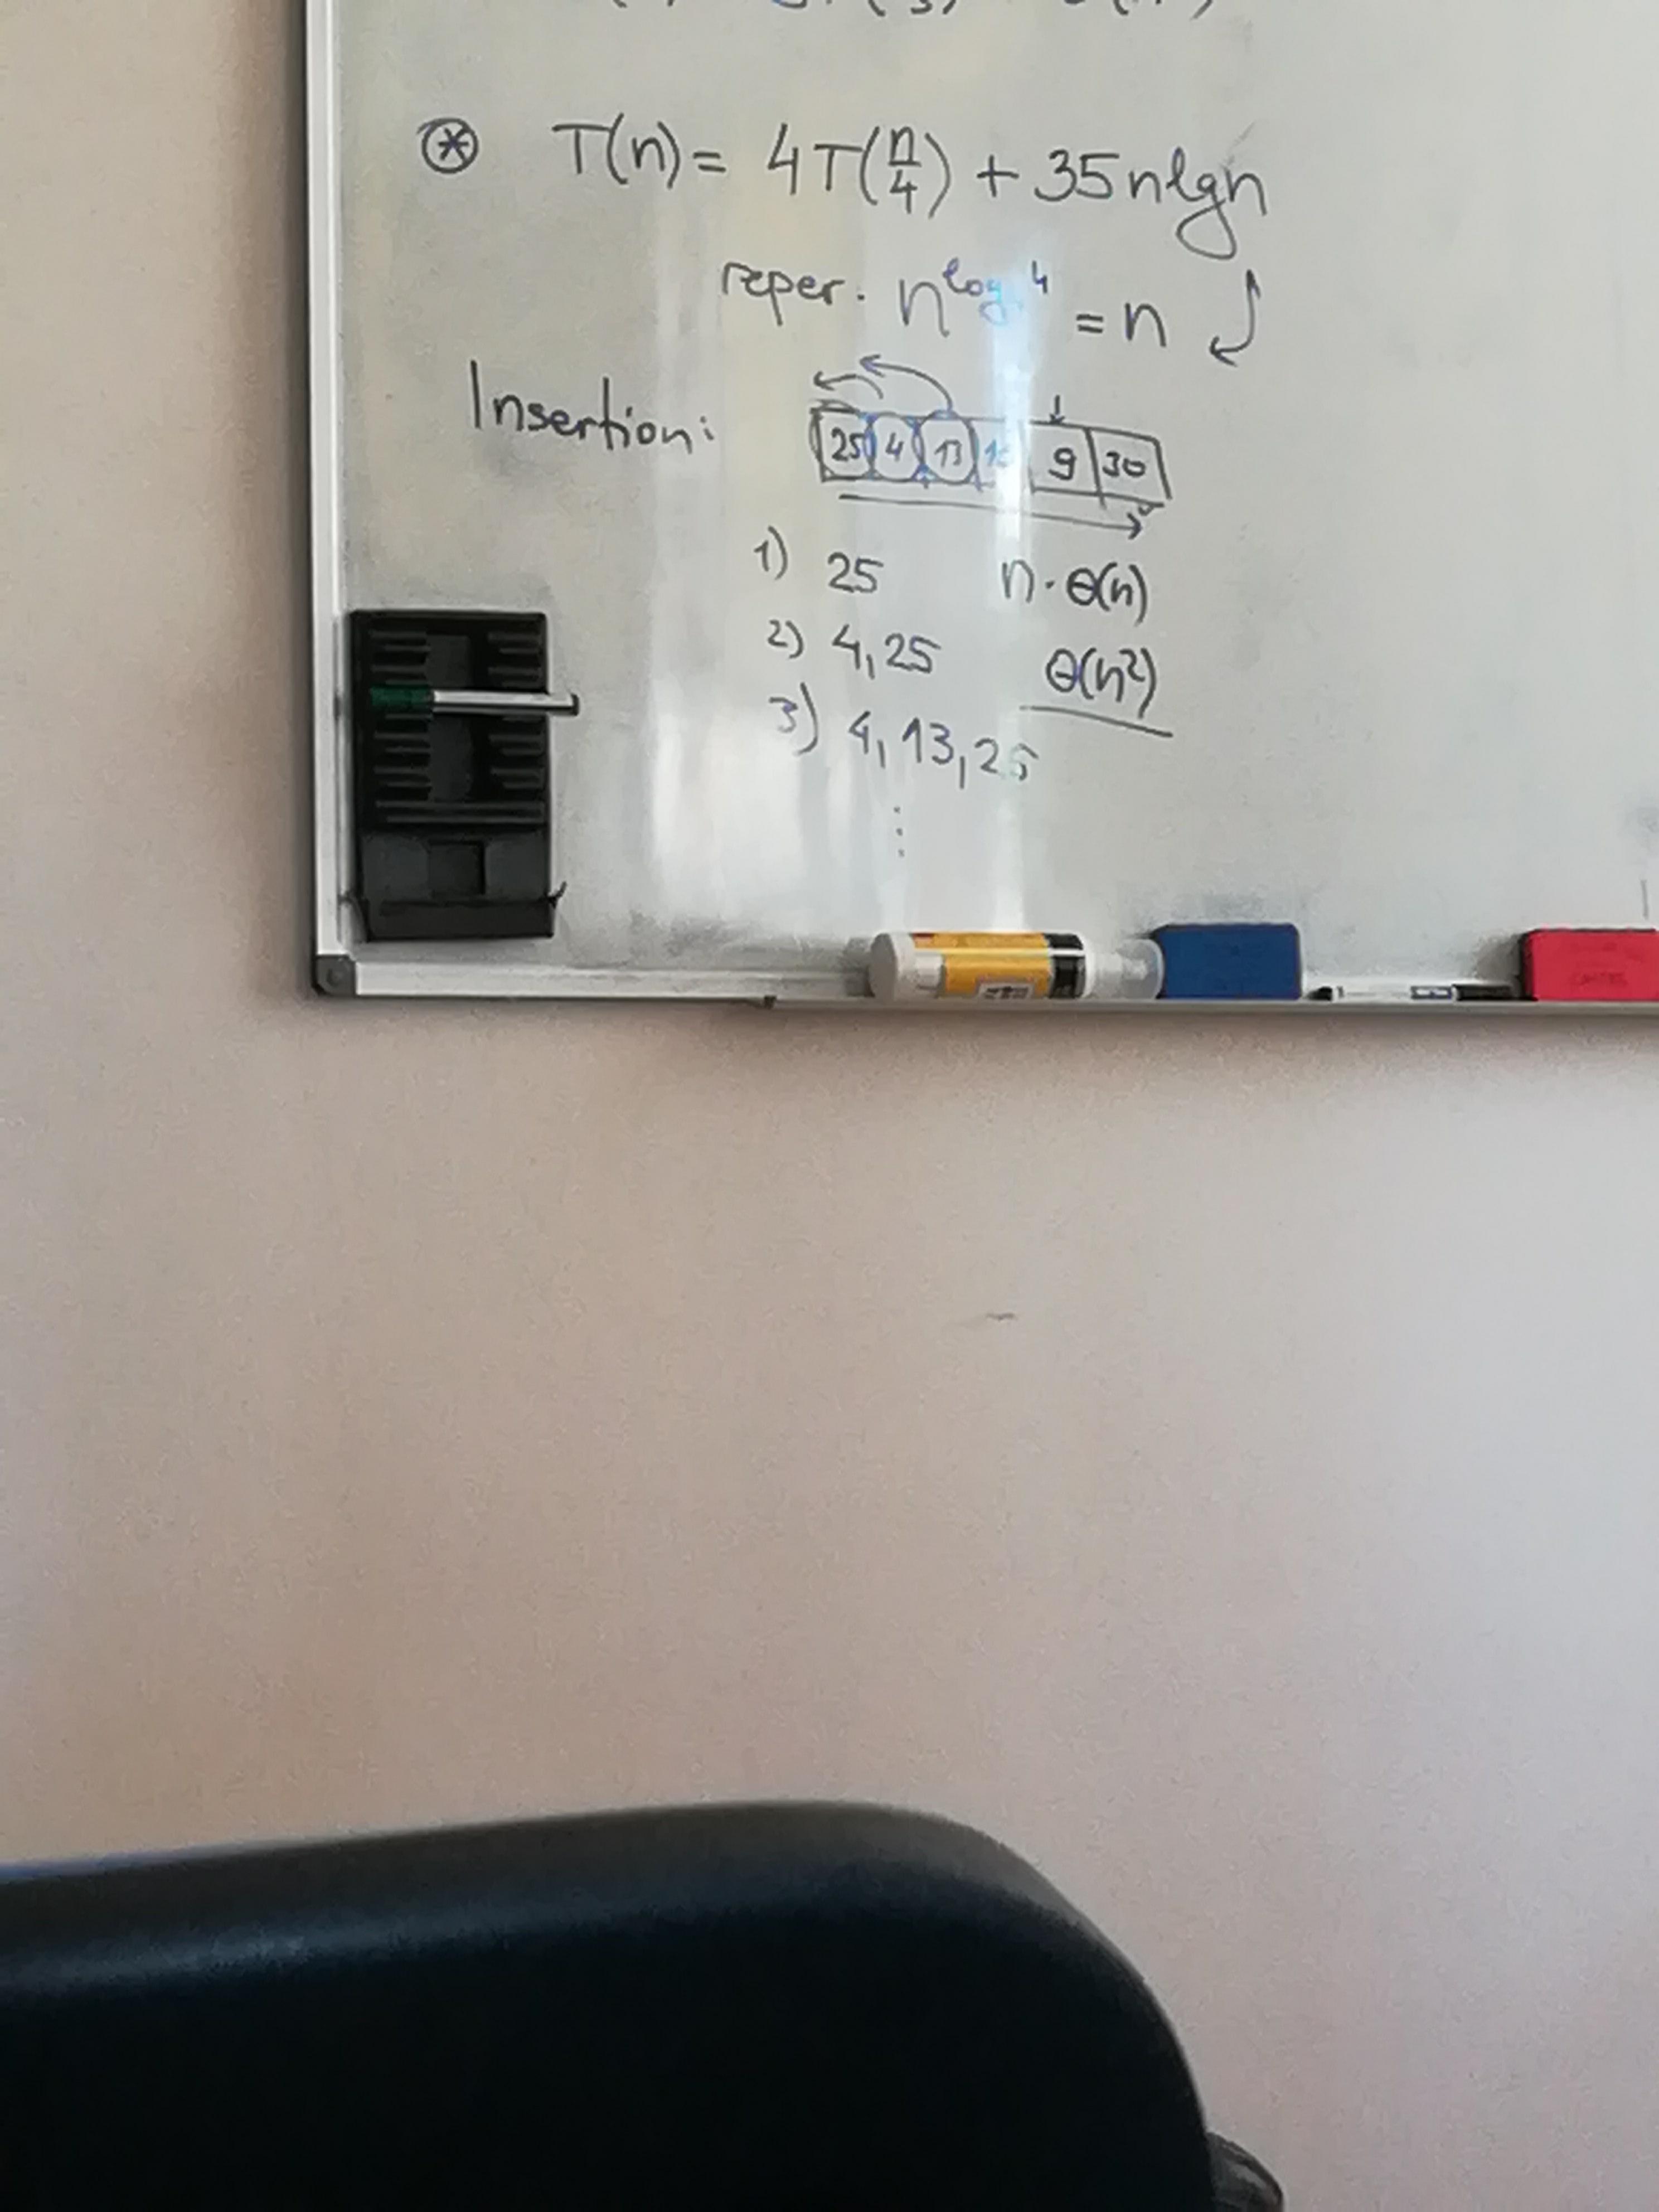 ⊛ T(n) = 4T(n/4) + 35nlgn
reper. n^log 4 = n
Insertion: 25 4 13 9 30
1) 25 n·Θ(n)
2) 4,25 Θ(n²)
3) 4,13,25
⋮